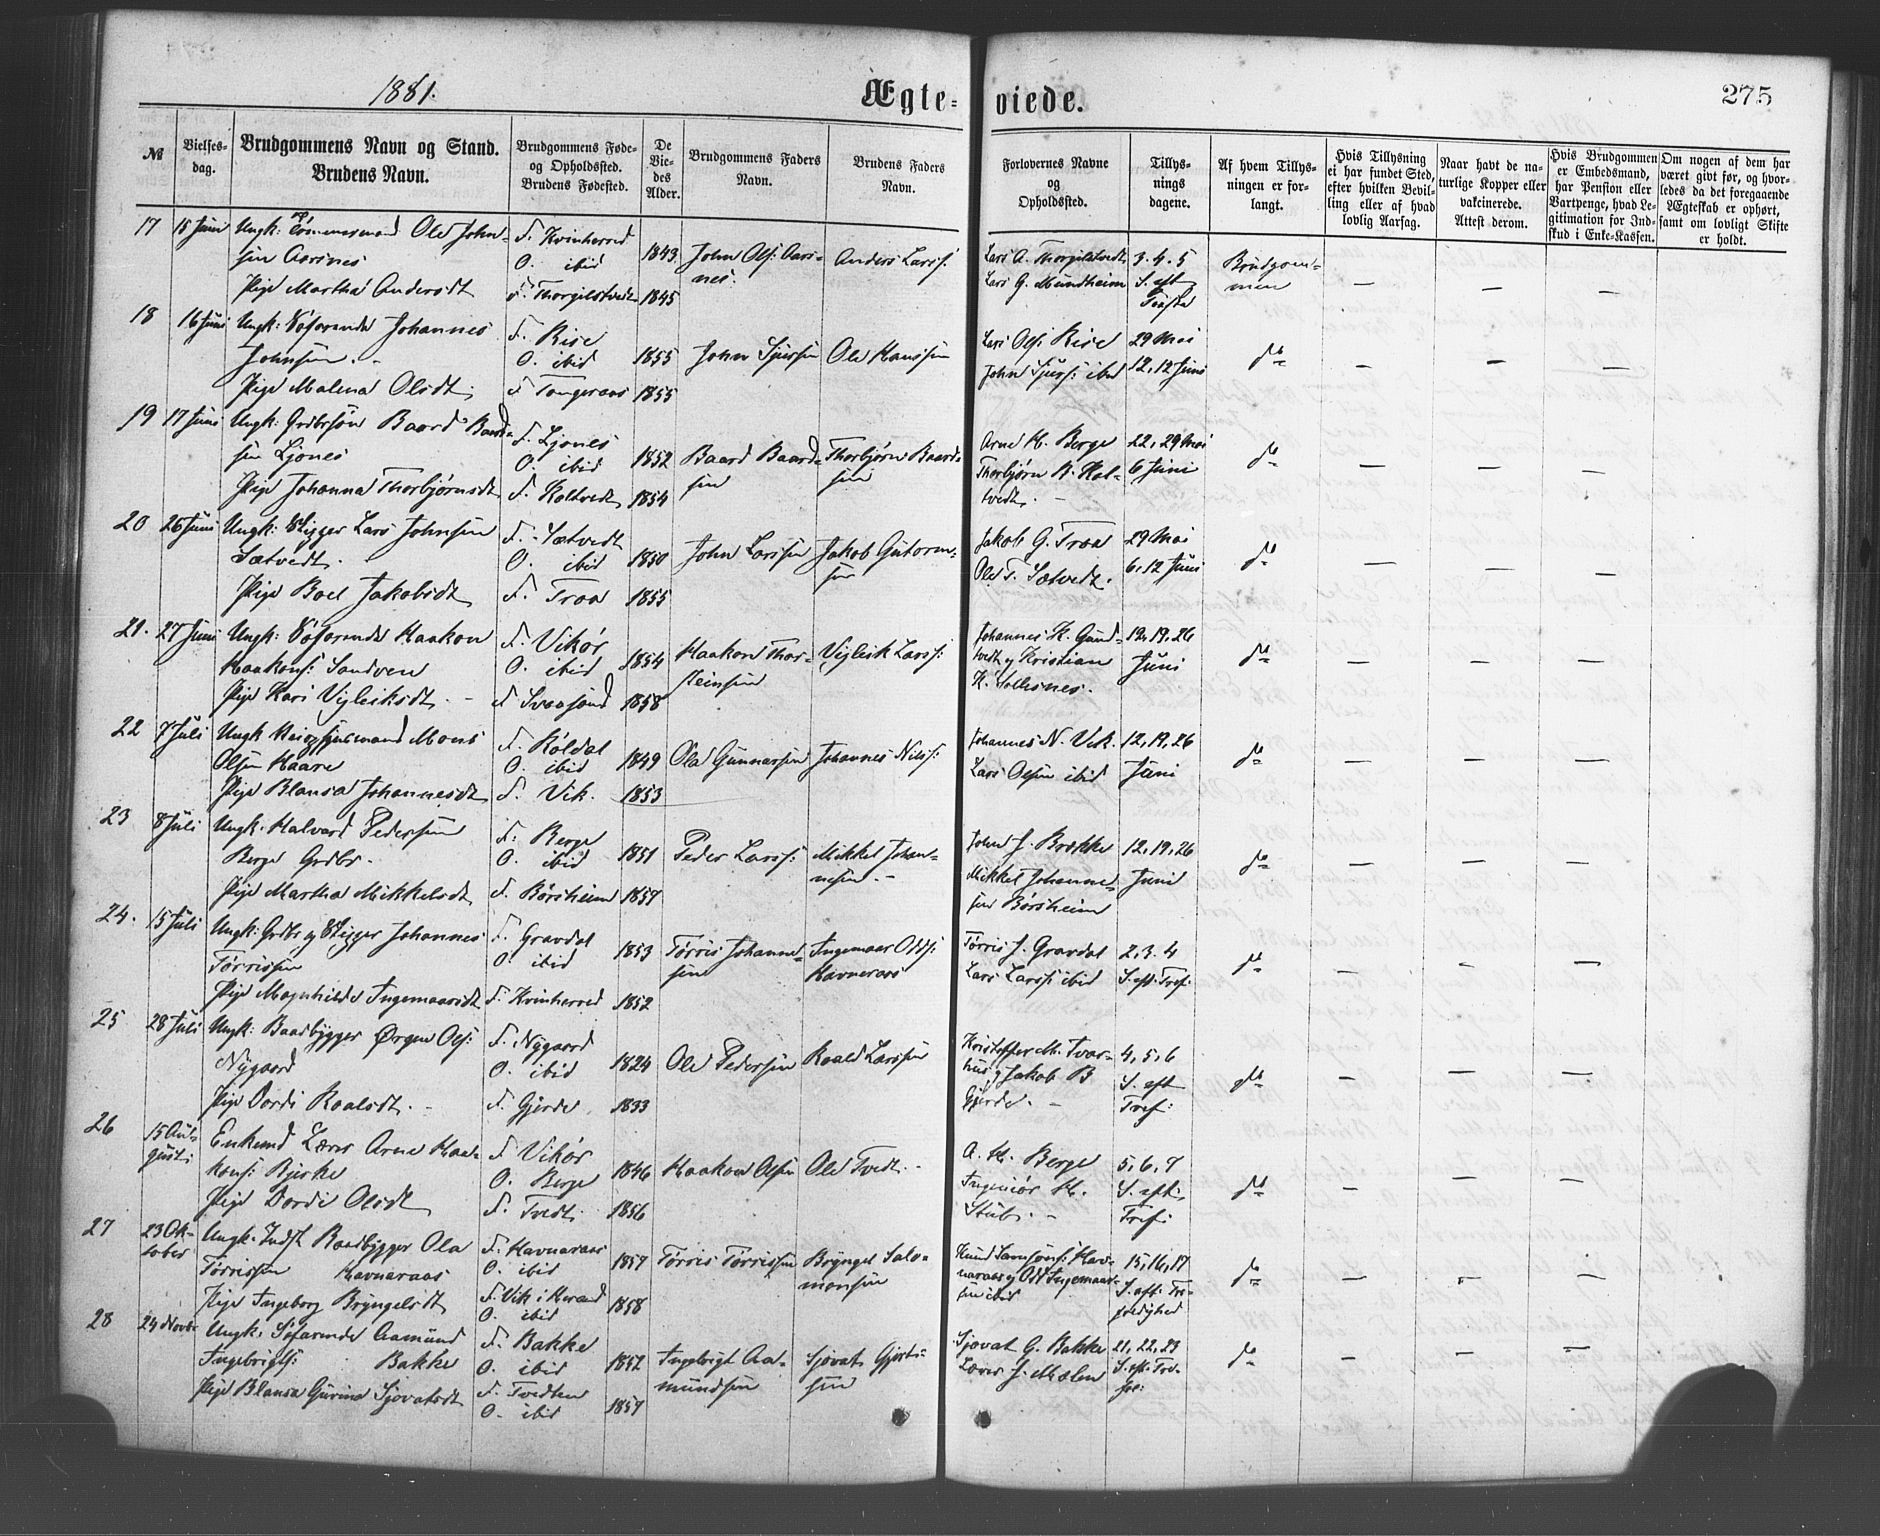 1881.
Ægte-
viede.
275
№
Vielses-
dag.
Brudgommens Navn og Stand.
Brudens Navn.
Brudgommens Føde-
og Opholdssted.
Brudens Fødested.
De
Vie-
des
Alder.
Brudgommens Faders
Navn.
Brudens Faders
Navn.
Forlovernes Navne
og
Opholdssted.
Tillys-
nings
dagene.
Af hvem Tillys-
ningen er for-
langt.
Hvis Tillysning
ei har fundet Sted,
efter hvilken Bevil-
ling eller af hvad
lovlig Aarsag.
Naar havt de na-
turlige Kopper eller
vakcinerede.
Attest derom.
Hvis Brudgommen
er Embedsmand,
har Pension eller
Vartpenge, hvad Le-
gitimation for Ind-
skud i Enke-Kassen.
Om nogen af dem har
været givt før, og hvor-
ledes da det foregaaende
Ægteskab er ophørt,
samt om lovligt Skifte
er holdt.
17
15 Juni
Ungk: Tømmermand Ole John-
sen Aarsnes
Pige Martha Andersdt
F. Kvinherred
O. ibid
F. Thorgilstvedt
1843
1845
John Ols: Aars-
nes.
Anders Larss:
Lars A. Thorgilstvedt
Lars G. Mundheim
3. 4. 5
S. eft
Brudgom-
men
18
16 Juni
Ungk: Søfarende Johannes
Johnsen. -
Pige Malena Olsdt
F. Rise
O. ibid
F. Tangeraas
1855
1855
John Sjursen
Ole Hanssen
Lars Ols: Rise
John Sjurs: ibid
29 Mai
12, 12 Juni
do
19
17 Juni
Ungk: Grdbrsøn Baard Baard-
sen Ljones
Pige Johanna Thorbjørnsdt
F. Ljones
O. ibid
F. Koltvedt
1852
1854
Baard Baard-
sen
Thorbjørn Baard-
sen
Arne H. Berge
Thorbjørn B. Kol-
tvedt. -
22, 29 Mai
6 Juni
do
20
26 Juni
Ungk: Stigger Lars Johnsen
Sætvedt.
Pige Boel Jakobsdt
F. Sætvedt
O. ibid
F. Traa
1850
1855
John Larssen
Jakob Guttorm-
sen
Jakob G. Traa
Ole T. Sætvedt.
29 Mai
6, 12 Juni
do
21.
27 Juni
Ungk: Søfarende Haakon
Haakons: Sandven
Pige Kari Vigleiksdt. -
F. Vikør
O. ibid
F. Svaasand
1854
1858
Haakon Thor-
steinsen
Vigleik Larss:
Johannes K. Gund-
tvedt og Kristian
K. Solhsnes.
12, 19, 26
Juni
do
22
7 Juli
Mons
Olsen Haare
Pige Blansa Johannesdt
F. Røldal
O. ibid
F. Vik.
1849
1853
Ola Gunnarsen
Johannes Nils:
Johannes N. Vik.
Lars Olsen ibid
12, 19, 26
Juni
do
23
8 Juli
Ungk. Halvard Pedersen
Berge Grdbr.
Pige Martha Mikkelsdt
F. Berge
O. ibid
F. Børsheim
1851
1857
Peder Larss:
Mikkel Johan-
nesen. -
John J. Brække
Mikkel Johanne-
sen Børsheim
12, 19, 26
Juni
do
24.
15 Juli
Ungk: Grdbr og Stigger Johannes
Tørrissen
Pige Magnhilde Ingemaarsdt
F. Gravdal
O. ibid
F. Kvinherred
1853
1852
Tørris Johanne-
sen
Ingemaar Odds:
Havneraas
Tørris J. Gravdal
Lars Larss: ibid
2, 3. 4
S. eft. Tref:
do
25
28 Juli
Ungk: Baadbygger Ørgen Ols:
Nygaard
Pige Dordi Roalsdt. -
F. Nygaard
O. ibid
F. Gjerde
1824
1833
Ole Pedersen
Roald Larssen
Kristoffer M. Tvar-
hus og Jakob B
Gjerde. -
4, 5, 6
S. eft
Tref:
do
26
15 Au-
gust:
Enkemd Lærer Arne Haa-
kons: Bjerke
Pige Dordi Olsdt
F. Vikør
O. Berge
F. Tvedt
1846
1856
Haakon Olsen
Ole Tvedt. -
A. H. Berge
Ingeniør H.
Stub. -
5, 6, 7
S. eft.
Tref:
do
27
23 Ok-
tober
Ungk. Indst Baadbygger Ola
Tørrissen Havneraas
Pige Ingeborg Bryngelsdt
F. Havneraas
O. ibid
F. Vik i Herand
O. ibid
1857
1858
Tørris Tørrissen
Bryngel Salo-
monsen
Knud Samsons: Hav-
neraas og Odd Ingemaar-
sen ibid
15, 16, 17
S. eft. Tre-
foldighed
do
28
24 Novbr
Ungk. Søfarende Aamund
Ingebrigts: Bakke
Pige Blansa Gurina Sjovatsdt
F. Bakke
O. ibid
F. Tvedten
O. ibid
1852
1857
Ingebrigt Aa-
mundsen
Sjovat Gjert-
sen
Sjovat G. Bakke
Laurs J. Mælen
21, 22, 23
S. eft. Tre-
fol:
do